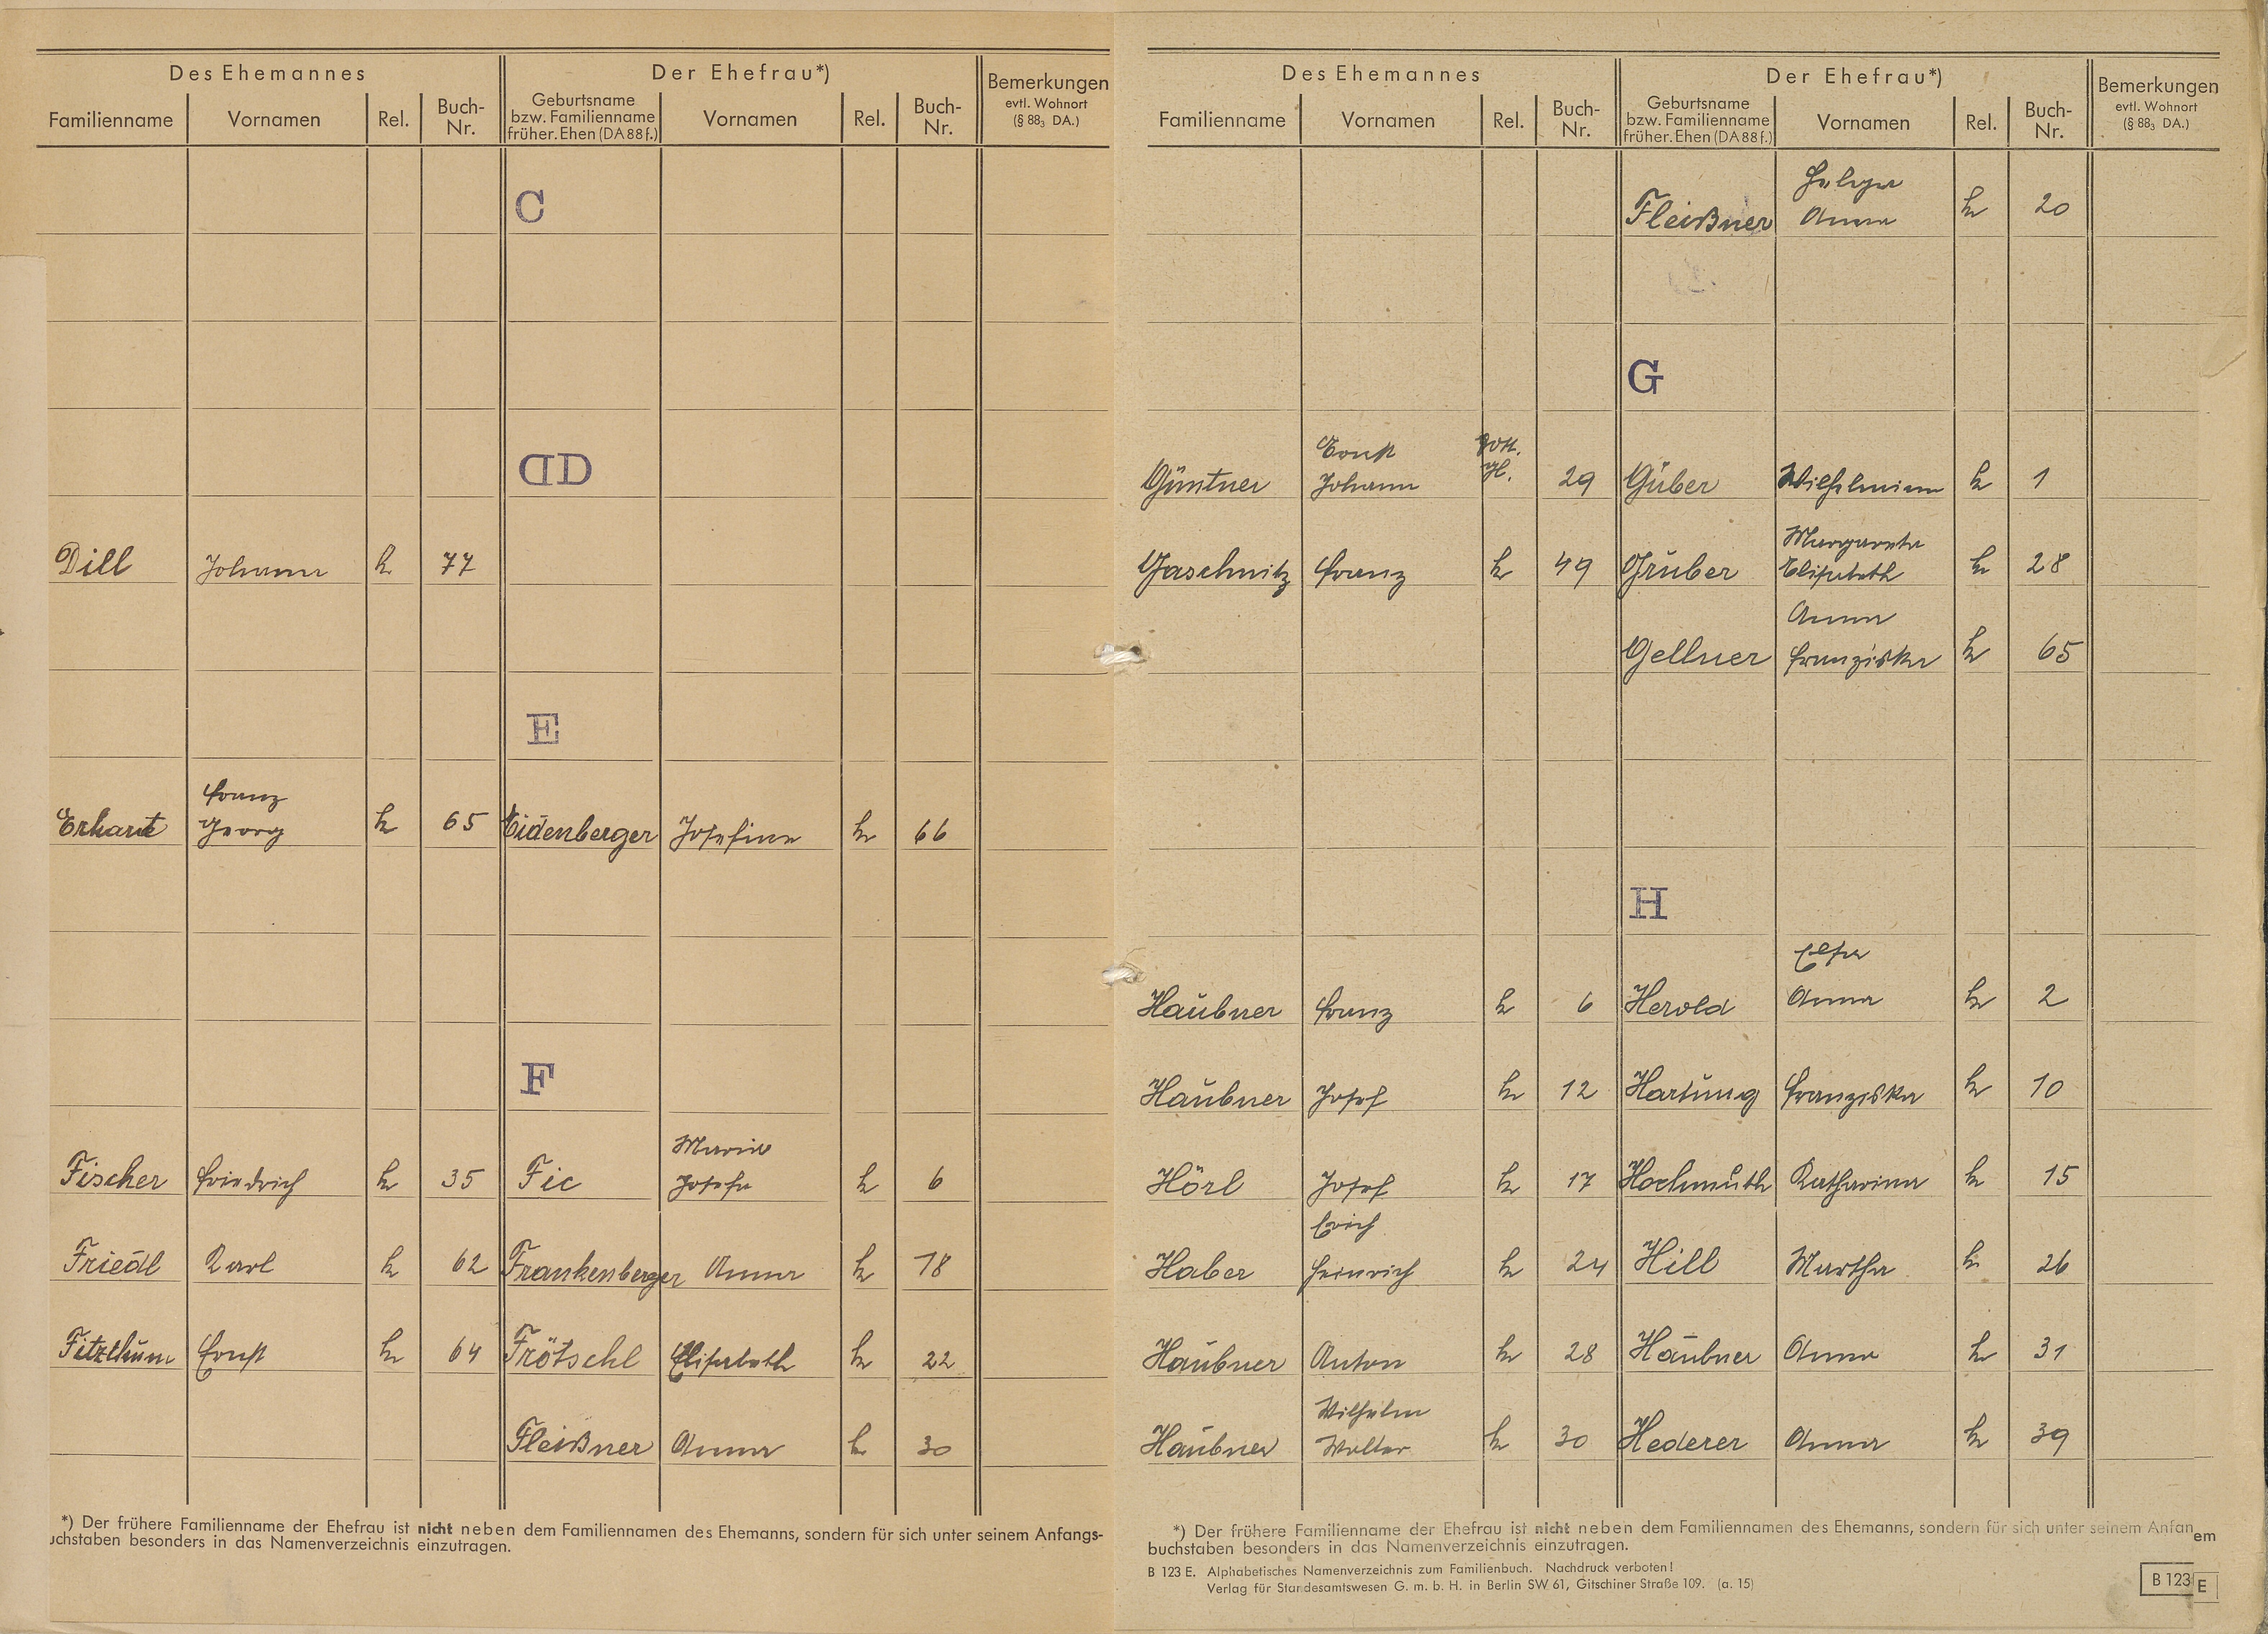 Des Ehemannes Der Ehefrau*) Bemerkungen
evtl. Wohnort
(§ 88₃ DA.)
Familienname Vornamen Rel. Buch-Nr. Geburtsname bzw. Familienname früher. Ehen (DA 88 f.) Vornamen Rel. Buch-Nr.
C
D D
Dill Johann k. 77
E
Erhart Franz Georg k 65 Eidenberger Josefine k 66
F
Fischer Friedrich k 35 Fic Marie Josefa k 6
Friedl Karl k 62 Frankenberger Anna k 18
Fitzthum Ernst k 64 Frötschl Elisabeth k 22
Fleißner Anna k 30
*) Der frühere Familienname der Ehefrau ist nicht neben dem Familiennamen des Ehemanns, sondern für sich unter seinem Anfangs-
uchstaben besonders in das Namenverzeichnis einzutragen.
Des Ehemannes Der Ehefrau*) Bemerkungen
evtl. Wohnort
(§ 88₃ DA.)
Familienname Vornamen Rel. Buch-Nr. Geburtsname bzw. Familienname früher. Ehen (DA 88 f.) Vornamen Rel. Buch-Nr.
Fleißner Helga Anna k 20
G
Güntner Ernst Johann gott. gl. 29 Gruber Wilhelmine k 1
Gaschnitz Franz k 49 Gruber Margareta Elisabeth k 28
Gellner Anna Franziska k 65
H
Haubner Franz k 6 Herold Elsa Anna k 2
Haubner Josef k 12 Hartung Franziska k 10
Hörl Josef k 17 Hochmuth Katharina k 15
Haber Erich Heinrich k 24 Hill Martha k 26
Haubner Anton k 28 Haubner Anna k 31
Haubner Wilhelm Walter k 30 Hederer Anna k 39
*) Der frühere Familienname der Ehefrau ist nicht neben dem Familiennamen des Ehemanns, sondern für sich unter seinem Anfan em
buchstaben besonders in das Namenverzeichnis einzutragen.
B 123 E. Alphabetisches Namenverzeichnis zum Familienbuch. Nachdruck verboten!
Verlag für Standesamtswesen G. m. b. H. in Berlin SW 61, Gitschiner Straße 109. (a. 15)
B 123 E